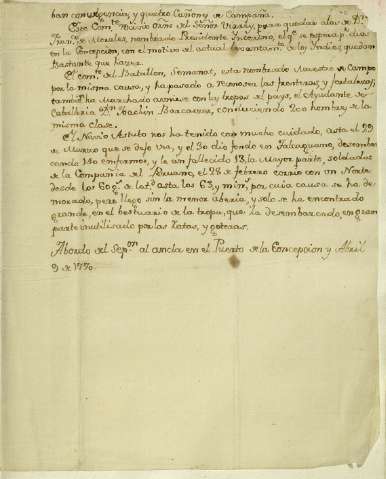 ban con urgencia, y quatro Cañones de Campaña.
Este Com.te vaino orn del Señor Virrey, para quedar alas de D.n
Fran.co Morales, nombrado Presidente Interino, el q.e se espera p.r dias
en la Concepcion, con el motivo del actual levantam.to de los Indios quedan
Bastante que hazer.
El com.te de Batallon, Semanat, esta nombrado Maestre de Campo
por la misma causa, y ha pasado a reconoser las fronteras y fortalesas;
tambien ha Marchado a unirse con las tropas del pays, el Ayudante de
Caballeria D.n Joachin Barcarses, conduciendo 200 hombres de la
misma clase.
El Navio Astuto nos ha tenido con mucho cuidado, asta el 29
de Marzo que se dejo ver, y el 30 dio fondo en Talcaguano, desembar
cando 140 enfermos, y le an fallecido 13, la Mayor parte, soldados
de la Compañia del Peruano, el 28 de febrero corrio con un Norte
desde los 60 g.s de lat.d asta los 63, y min.s, por cuia causa se ha de
morado, pero llego sin la menor aberia, y solo se ha encontrado
grande, en el bestuario de la tropa, que la desembarcando, en gran
parte inutilisado por las ratas, y goteras.
Abordo del Sep.on al ancla en el Puerto de la Concepcion y Abril
9 de 1770